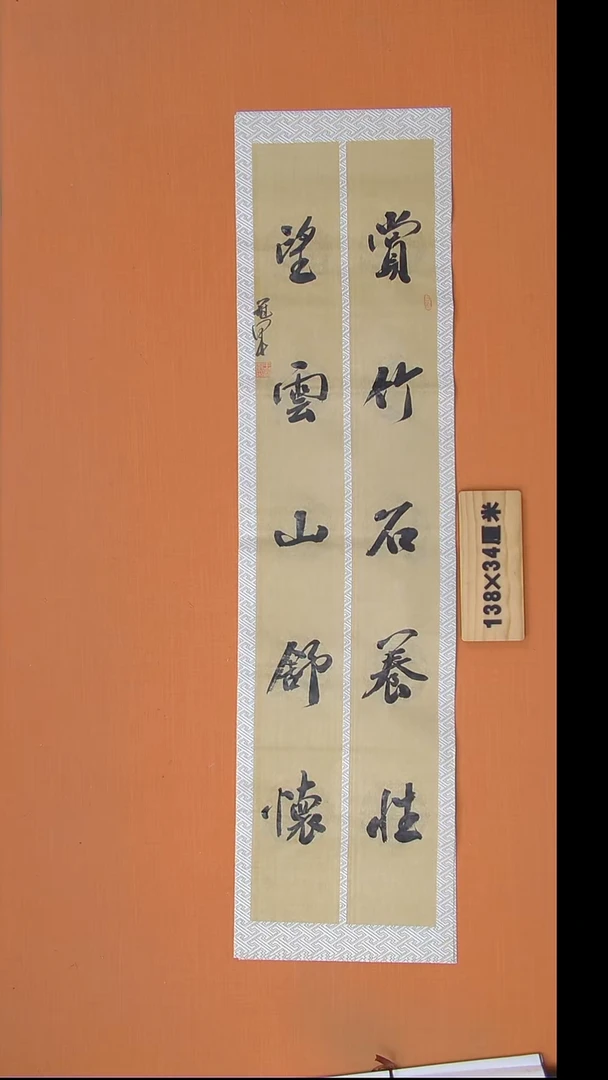 賞竹石養性
望雲山舒懷
138×34厘米